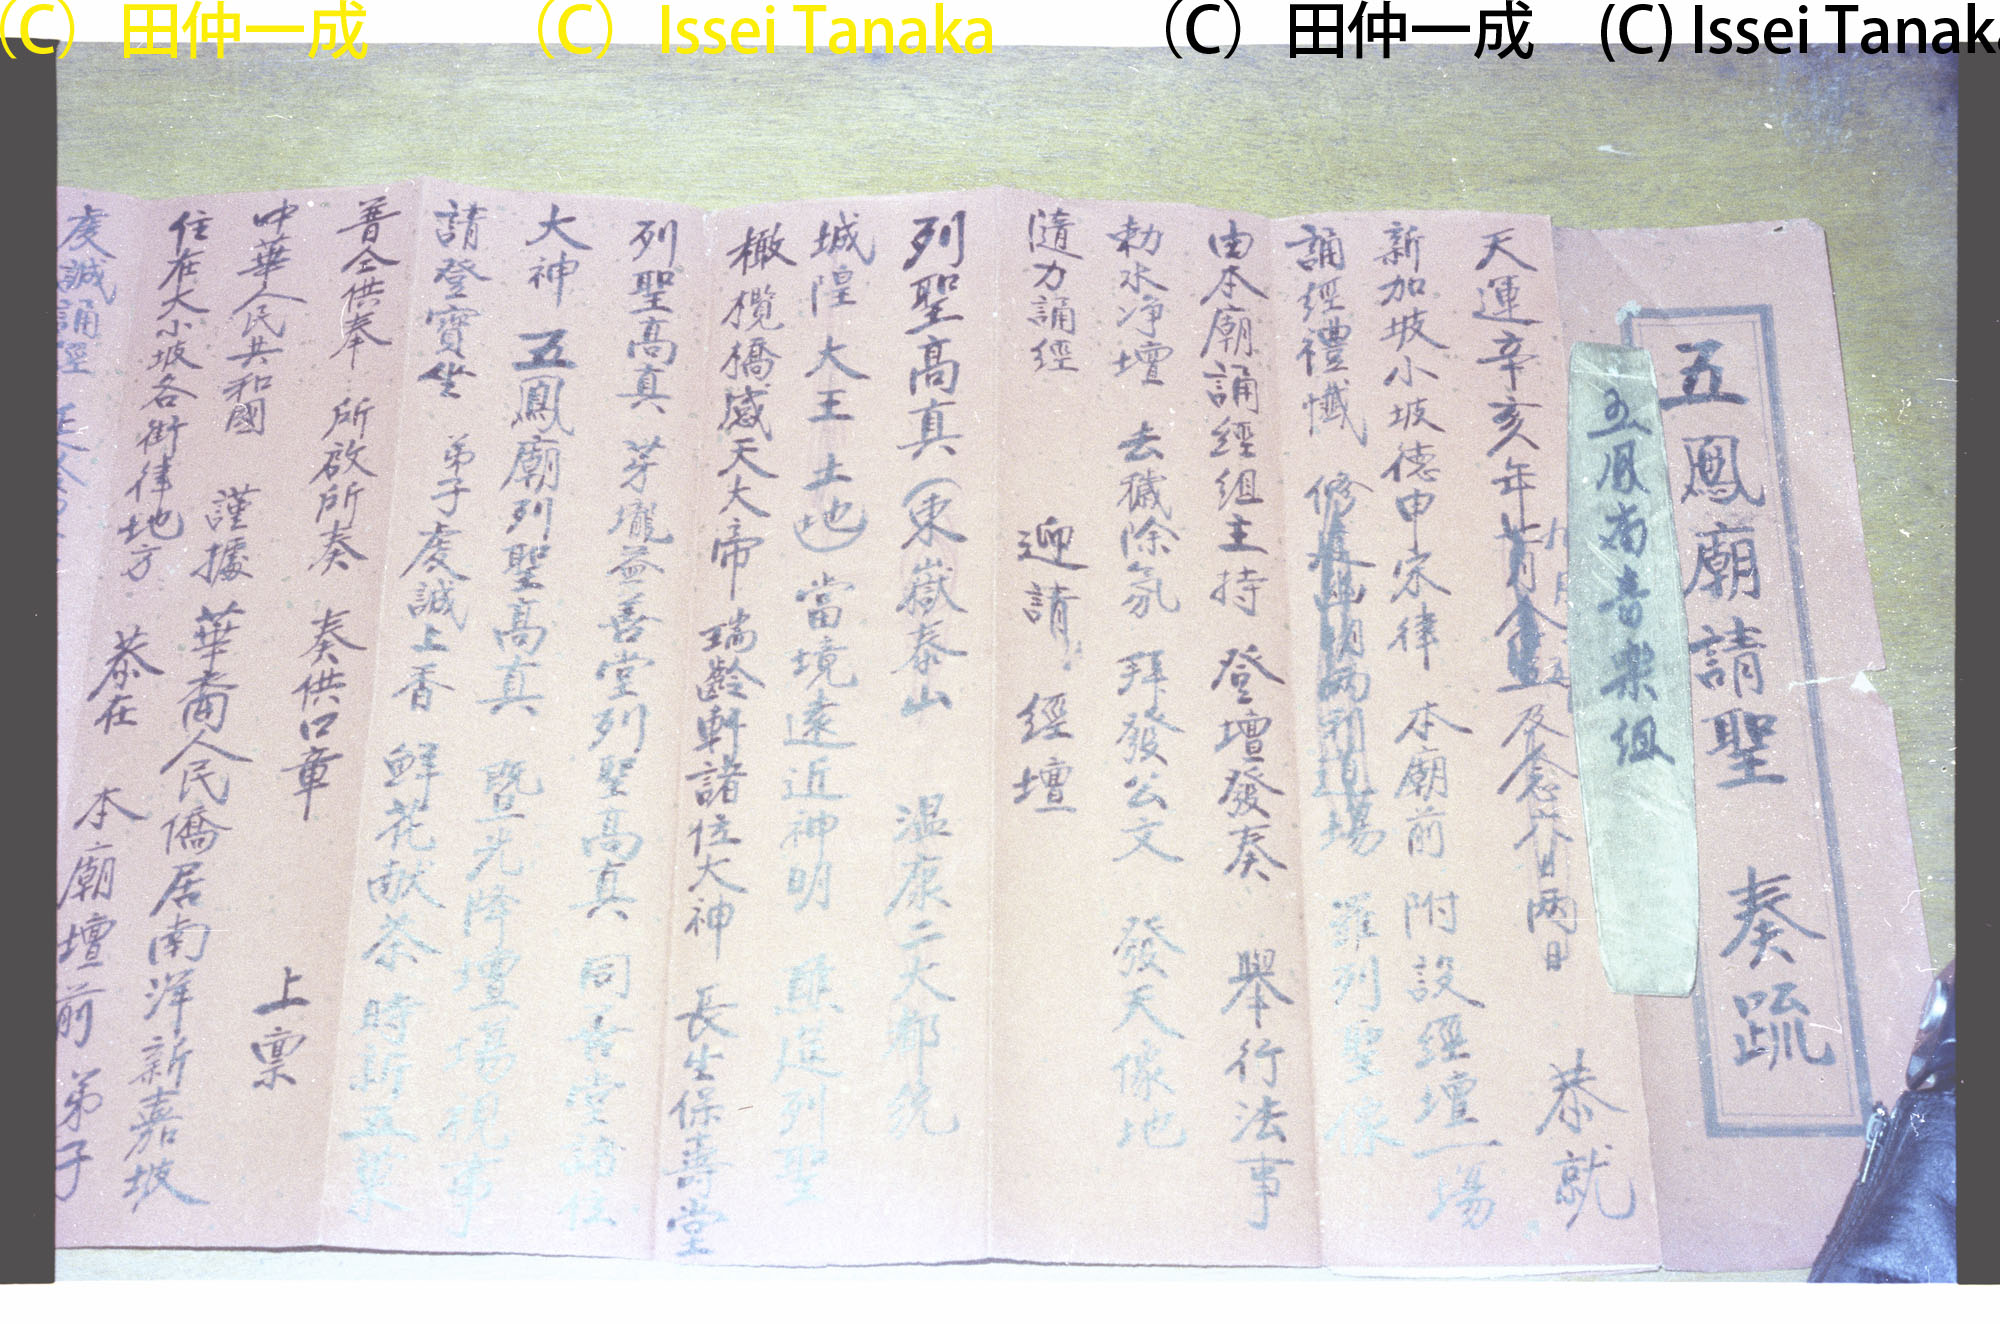 (C) 田仲一成 (C) Issei Tanaka (C) 田仲一成 (C) Issei Tanaka
五鳳廟請聖 奏疏
五鳳廟音樂組
天運辛亥年 九月 及念 日两日 恭就
新加坡小坡德申宋律 本廟前 附設經壇一場
誦經禮懺 修 两利道場 羅列聖像
由本廟誦經組主持 登壇發奏 舉行法事
勅水净壇 去穢除氛 拜發公文 發天像地
隨力誦經 迎請 經壇
列聖高真(東嶽泰山 温康二大都統
城隍 大王 土地) 當境遠近神明 列聖
橄欖橋感天大帝 瑞齡軒諸位大神 長生保壽堂
列聖高真 芽壠益善堂列聖高真 同善堂諸位
大神 五鳳廟列聖高真 既光降壇場視事
請登寶坐 弟子虔誠上香 鮮花献茶 時新五菓
普仝供奉 所啟所奏 奏供口章 上稟
中華人民共和國 謹據 華裔人民僑居南洋新嘉坡
住在大小坡各街律地方 恭在 本廟壇前 弟子
虔誠誦經